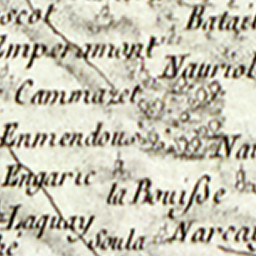 scot
Batail
Imperamont
Nauriol
Cammazet
Enmendous
Nau
Engaric
la Bouiſse
Laquay
Soula
Narcay